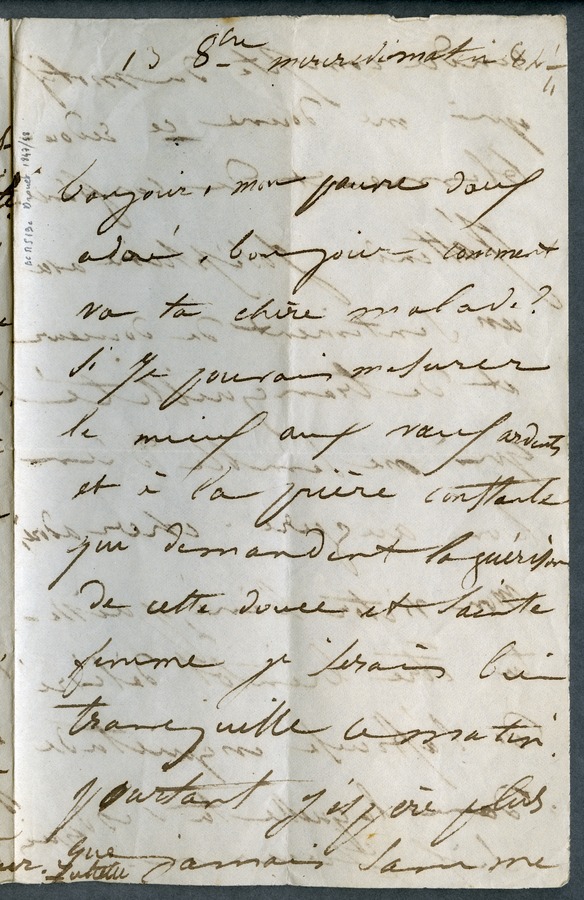 13 8bre mercredi matin 8h ¼
bonjour, mon pauvre doux
adoré, bonjour comment
va ta chère malade?
Si je pouvais mesurer
le mieux aux vœux ardents
et à la prière constante
qui demandent la guérison
de cette douce et sainte
femme je serais bien
tranquille ce matin.
pourtant j'espère plus
que jamais